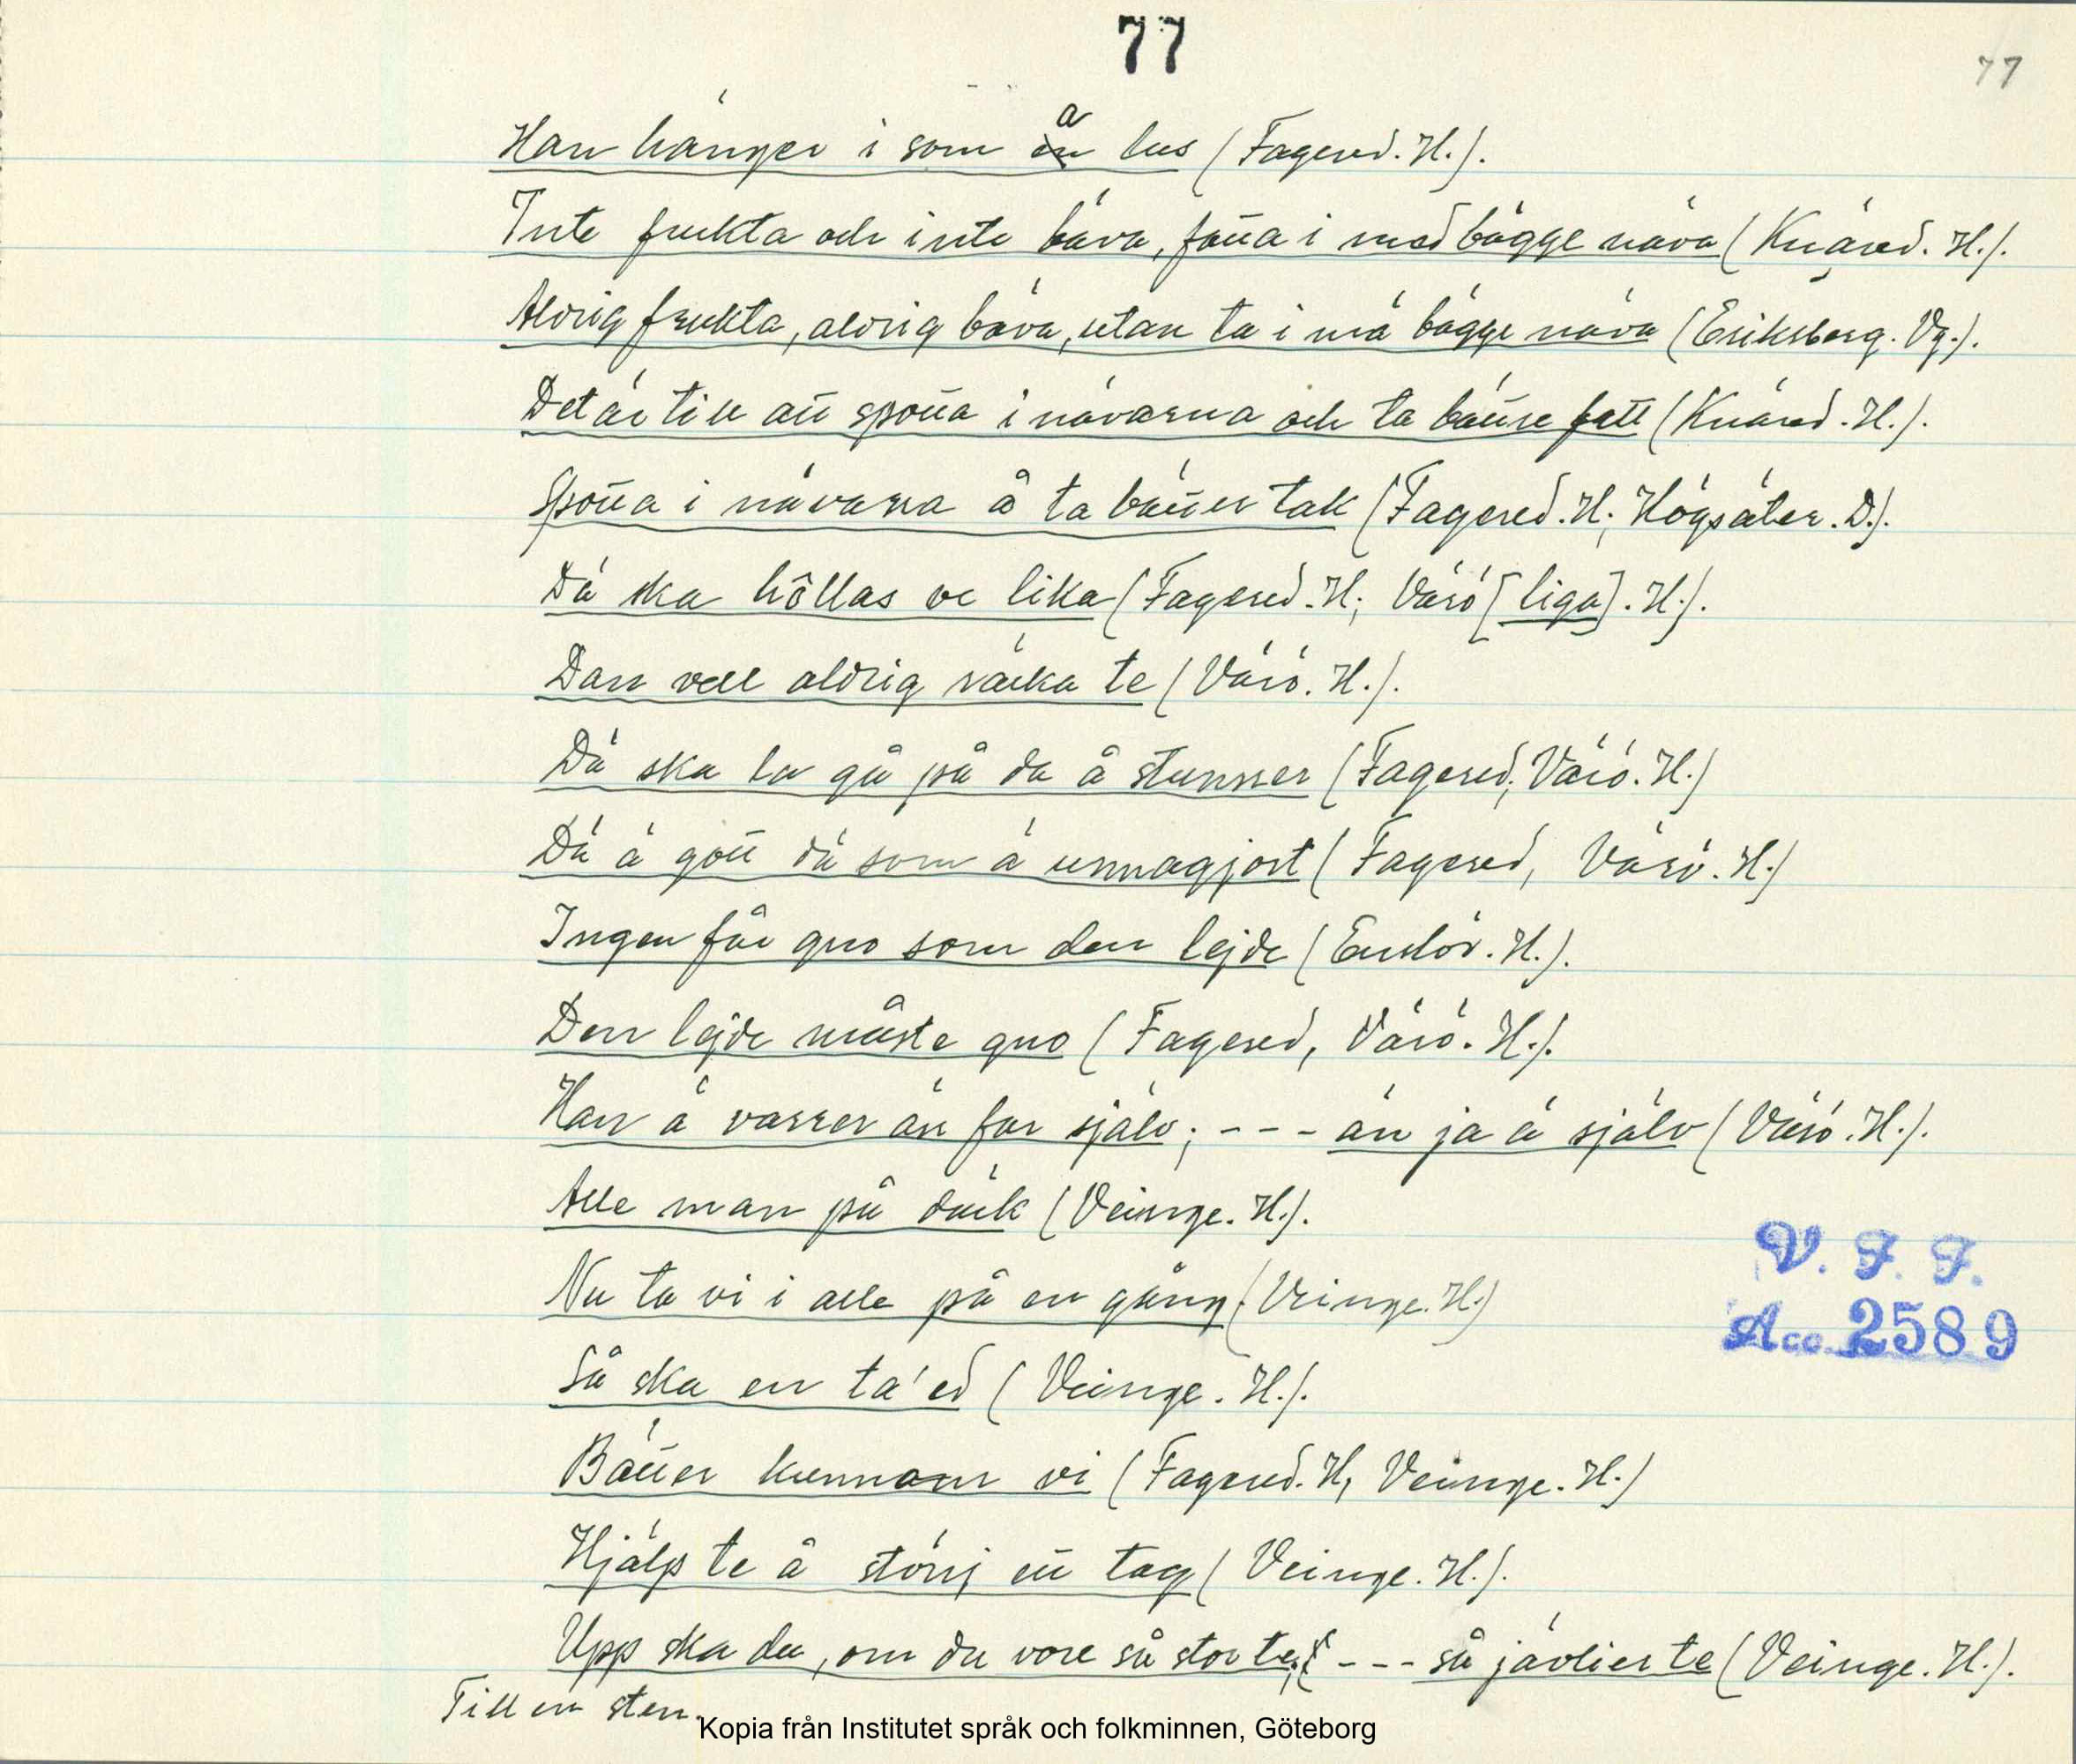 77
77
Han hänger i som a lus (Fagered. H.).
Inte frukta och inte bäva, fatta i med bägge näva (Knäred. H.).
Aldrig frukta, aldrig bäva, utan ta i mä bägge näva (Eriksberg. Vg.).
Det är till att spotta i nävarna och ta bättre fatt (Knäred. H.).
Spotta i nävarna å ta bätter tak (Fagered. H; Högsäter. D.).
Dä ska hôllas ve lika (Fagered. H; Värö [liga]. H.).
Dan vell aldrig räcka te (Värö. H.).
Dä ska la gå på da å stunner (Fagered, Värö. H.)
Dä ä gott dä som ä unnagjort (Fagered, Värö. H.)
Ingen får gno som den lejde (Enslöv. H.).
Den lejde måste gno (Fagered, Värö. H.).
Han ä varrer än far själv; --- än ja ä själv (Värö. H.).
Alle man på däck (Veinge. H.).
Nu ta vi i alle på en gång (Veinge. H.)
V. F. F.
Acc. 2589
Så ska en ta'ed (Veinge. H.).
Bätter kunnom vi (Fagered. H, Veinge. H.)
Hjälp te å störj ett tag (Veinge. H.).
Upp ska du, om du vore så stor te; --- så jävlier te (Veinge. H.).
Till en sten.
Kopia från Institutet språk och folkminnen, Göteborg